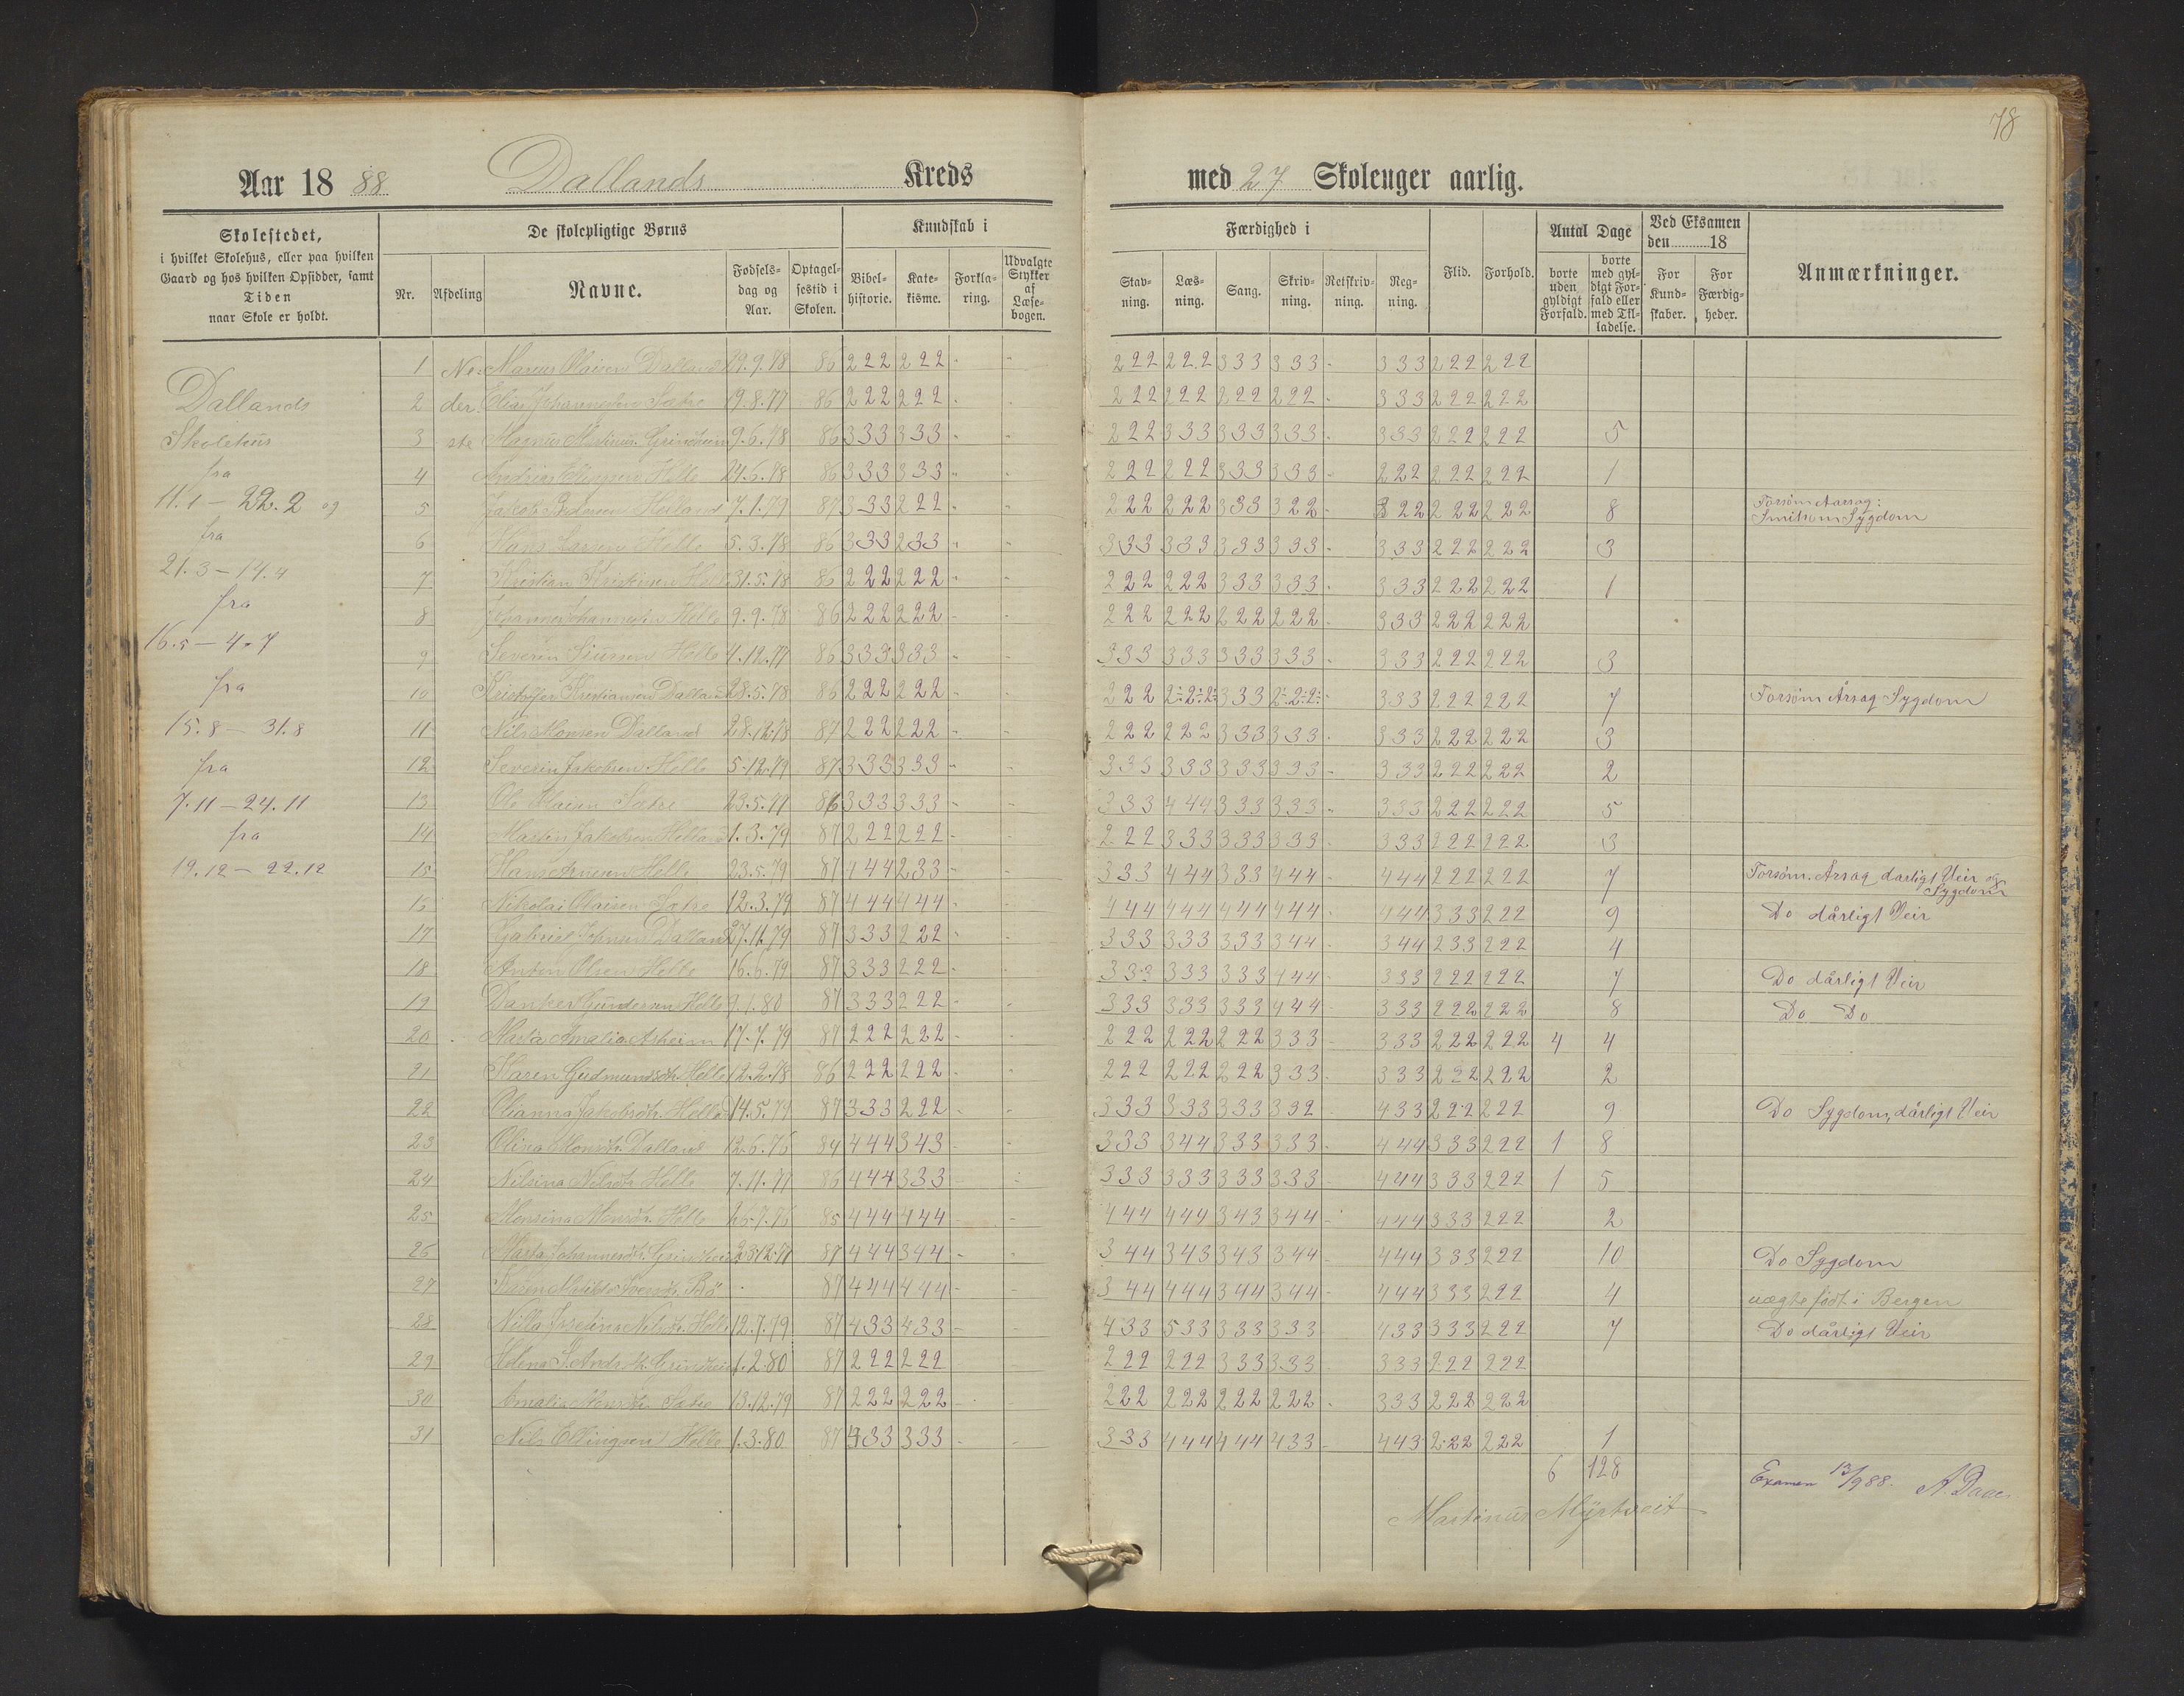 78
Aar 18 88 Dallands Kreds med 27 Skoleuger aarlig.
Skolestedet,
i hvilket Skolehus, eller paa hvilken
Gaard og hos hvilken Opsidder, samt
Tiden
naar Skole er holdt.
De skolepligtige Børns
Nr.
Afdeling
Navne.
Fødsels-
dag og
Aar.
Optagel-
sestid i
Skolen.
Kundskab i
Bibel-
historie.
Kate-
kisme.
Forkla-
ring.
Udvalgte
Stykker
af
Læse-
bogen.
Færdighed i
Stav-
ning.
Læs-
ning.
Sang.
Skriv-
ning.
Retskriv-
ning.
Reg-
ning.
Flid.
Forhold.
Antal Dage
borte
uden
gyldigt
Forfald.
borte
med gyl-
digt For-
fald eller
med Til-
ladelse.
Ved Eksamen
den 18
For
Kund-
skaber.
For
Færdig-
heder.
Anmærkninger.
Dallands
Skolehus
fra
11.1 - 22.2 og
fra
21.3 - 14.4
fra
16.5 - 4.7
fra
15.8 - 31.8
fra
7.11 - 24.11
fra
19.12 - 22.12
1 Ne- Marius Olaisen Dalland 19.9.78 86 222 222 222 222 333 333 333 222 222
2 der- Elias Johannesen Sætre 19.8.77 86 222 222 222 222 222 222 333 222 222
3 ste Magnus Grindheim 9.6.78 86 333 333 222 333 333 333 333 222 222 5
4 Andreas Ellingsen Helle 24.6.78 86 333 333 222 222 333 333 222 222 222 1
5 Jakob 7.1.79 87 333 222 222 222 333 322 322 222 222 8 Forsøm Aarsag: Smitsom Sygdom
6 Hans Larsen Helle 5.3.78 86 333 233 333 333 333 333 333 222 222 3
7 Kristian Kristensen Helle 31.5.78 86 222 222 222 222 333 333 333 222 222 1
8 Johannes Johannessen Helle 9.9.78 86 222 222 222 222 222 222 333 222 222
9 Severin Sjursen Helle 4.12.77 86 333 333 333 333 333 333 333 222 222 3
10 Kristoffer Kristiansen Dalland 28.5.78 86 222 222 222 2÷2÷2÷ 333 2÷2÷2÷ 333 222 222 7 Forsøm Årsag Sygdom
11 Nils Monsen Dalland 28.12.78 87 222 222 222 222 333 333 333 222 222 3
12 Severin Jakobsen Helle 5.12.79 87 333 333 333 333 333 333 333 222 222 2
13 Ole Sætre 23.5.77 86 333 333 333 444 333 333 333 222 222 5
14 Martin Jakobsen 1.3.79 87 222 222 222 333 333 333 333 222 222 3
15 Hans Helle 23.5.79 87 444 233 333 444 333 444 444 222 222 7 Forsøm. Årsag darligt Veir og Sygdom
16 Nikolai Olaisen Sætre 12.3.79 87 444 444 444 444 444 444 444 333 222 9 Do dårligt Veir
17 Gabriel Johnsen Dalland 27.11.79 87 333 222 333 333 333 344 344 233 222 4
18 Anton Olsen Helle 16.6.79 87 333 222 333 333 333 444 333 222 222 7 Do dårligt Veir
19 Danker Gundersen Helle 2.1.80 87 333 222 333 333 333 444 333 222 222 8 Do Do
20 Marta Amalia Asheim 17.7.79 87 222 222 222 222 222 333 333 222 222 4 4
21 Karen Gudmundsdtr. Helle 12.2.78 86 222 222 222 222 222 333 333 222 222 2
22 Olianna Jakobsdtr. Helle 14.5.79 87 333 222 333 333 333 332 433 222 222 9 Do Sygdom, dårligt Veir
23 Olina Monsdtr. Dalland 12.6.76 84 444 343 333 344 333 333 444 333 222 1 8
24 Nilsina Nilsdtr. Helle 7.11.77 86 444 333 333 333 333 333 444 333 222 1 5
25 Monsina Monsdtr. Helle 26.7.76 85 444 444 444 444 343 344 444 333 222 2
26 Marta Johannesdtr. Grindheim 23.12.77 87 444 344 344 343 343 344 444 333 222 10 Do Sygdom
27 Karen Bø 87 444 444 344 444 344 344 444 333 222 4 uægte født i Bergen
28 Nilla Josefina Nilsdtr. Helle 12.7.79 87 433 433 433 533 333 333 433 333 222 7 Do dårligt Veir
29 Helena S. Andr.dtr. Grindheim 1.2.80 87 222 222 222 222 333 333 333 222 222
30 Amalia Monsdtr. Sætre 13.12.79 87 222 222 222 222 222 222 333 222 222
31 Nils Ellingsen Helle 1.3.80 87 433 333 333 444 444 433 443 222 222 1
6 128
Examen 13/9 88. A. Daae.
Martinus Myrtveit